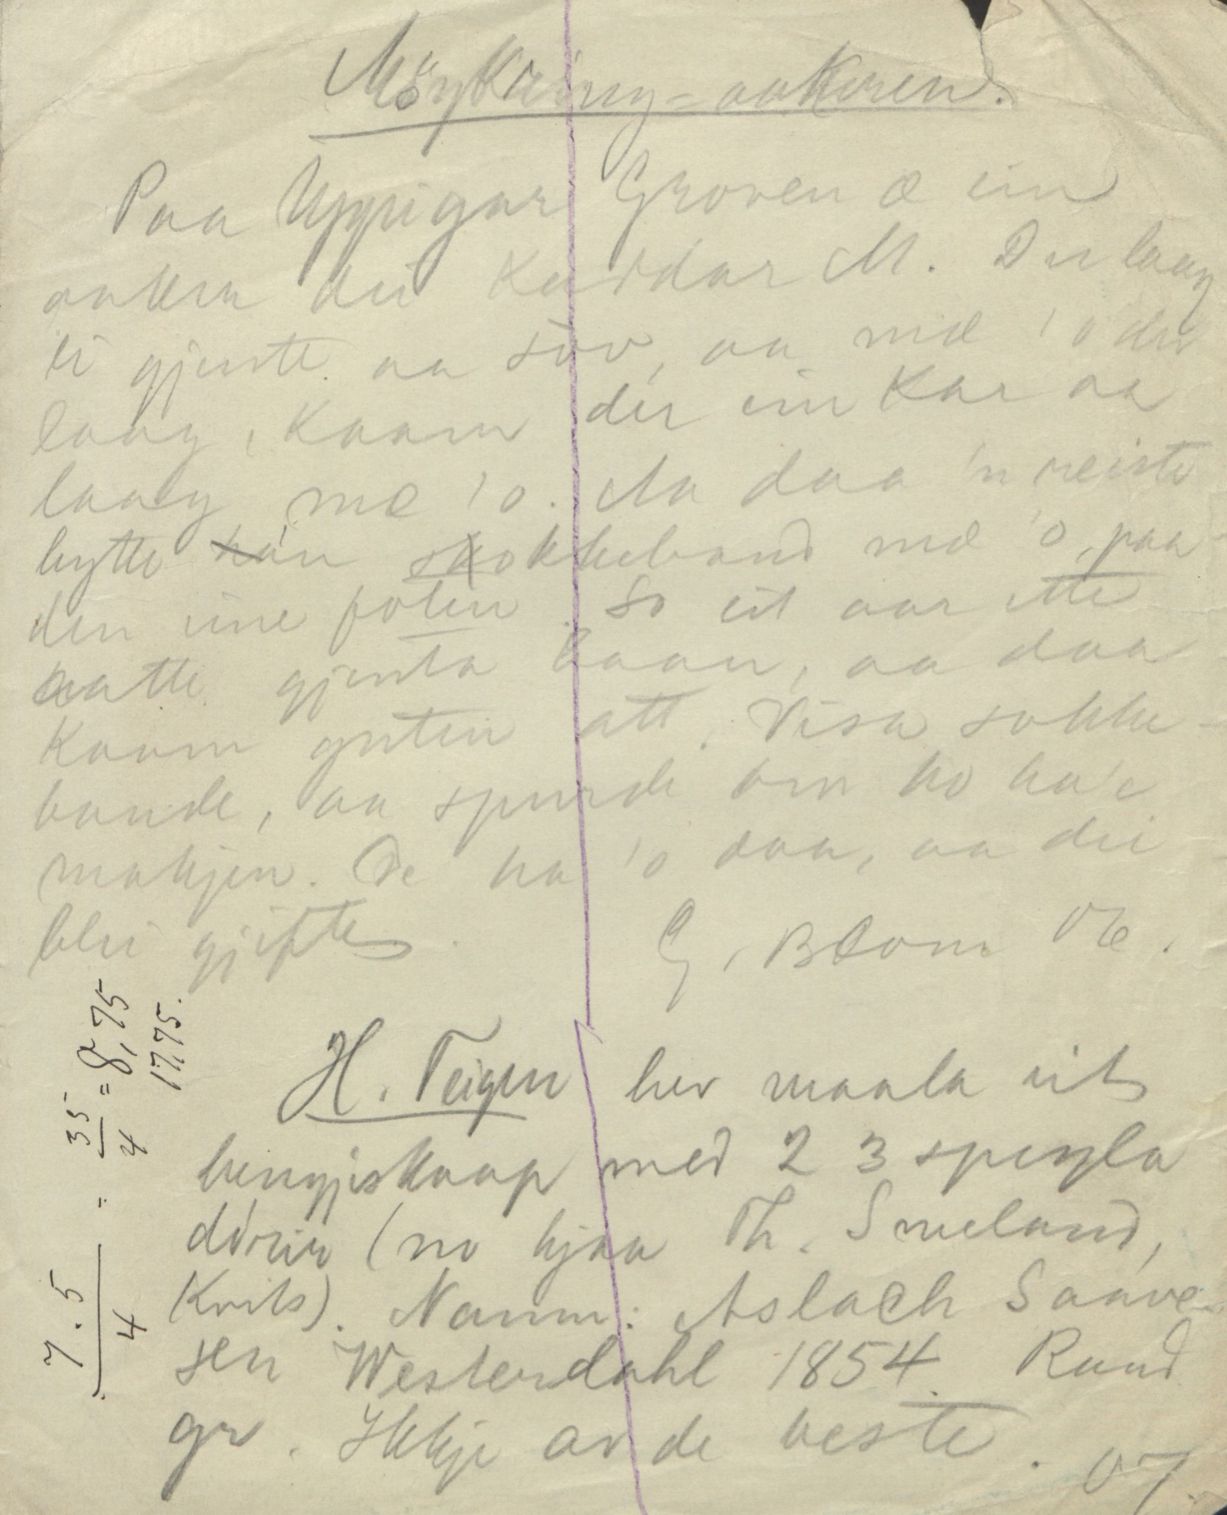 Möykring-aakeren.
Paa Uppigar Groven æ ein
aaker dei kaddar M. Der laag
ei gjente aa sov, aa mæ 'o der
laag, kaam der ein kar aa
laag mæ 'o. Aa daa 'n reiste
bytte han sokkeband mæ 'o, paa
den eine foten. So eit aar ette
hatte gjenta baan, aa daa
kaam guten att. Visa sokke-
bande, aa spurde om ho ha'e
makjen. De ha 'o daa, aa dei
blei gjifte.
G. Blom 06.
H. Teigen hev maala eit
hengjeskaap med 2 3 spegla
dörir (no hjaa Th. Smeland,
Kvits). Namn: Aslach Saave-
sen Westerdahl 1854. Raud
gr. Ikkje av de beste. 07
7.5/4 = 35/4 = 8,75
17,75.